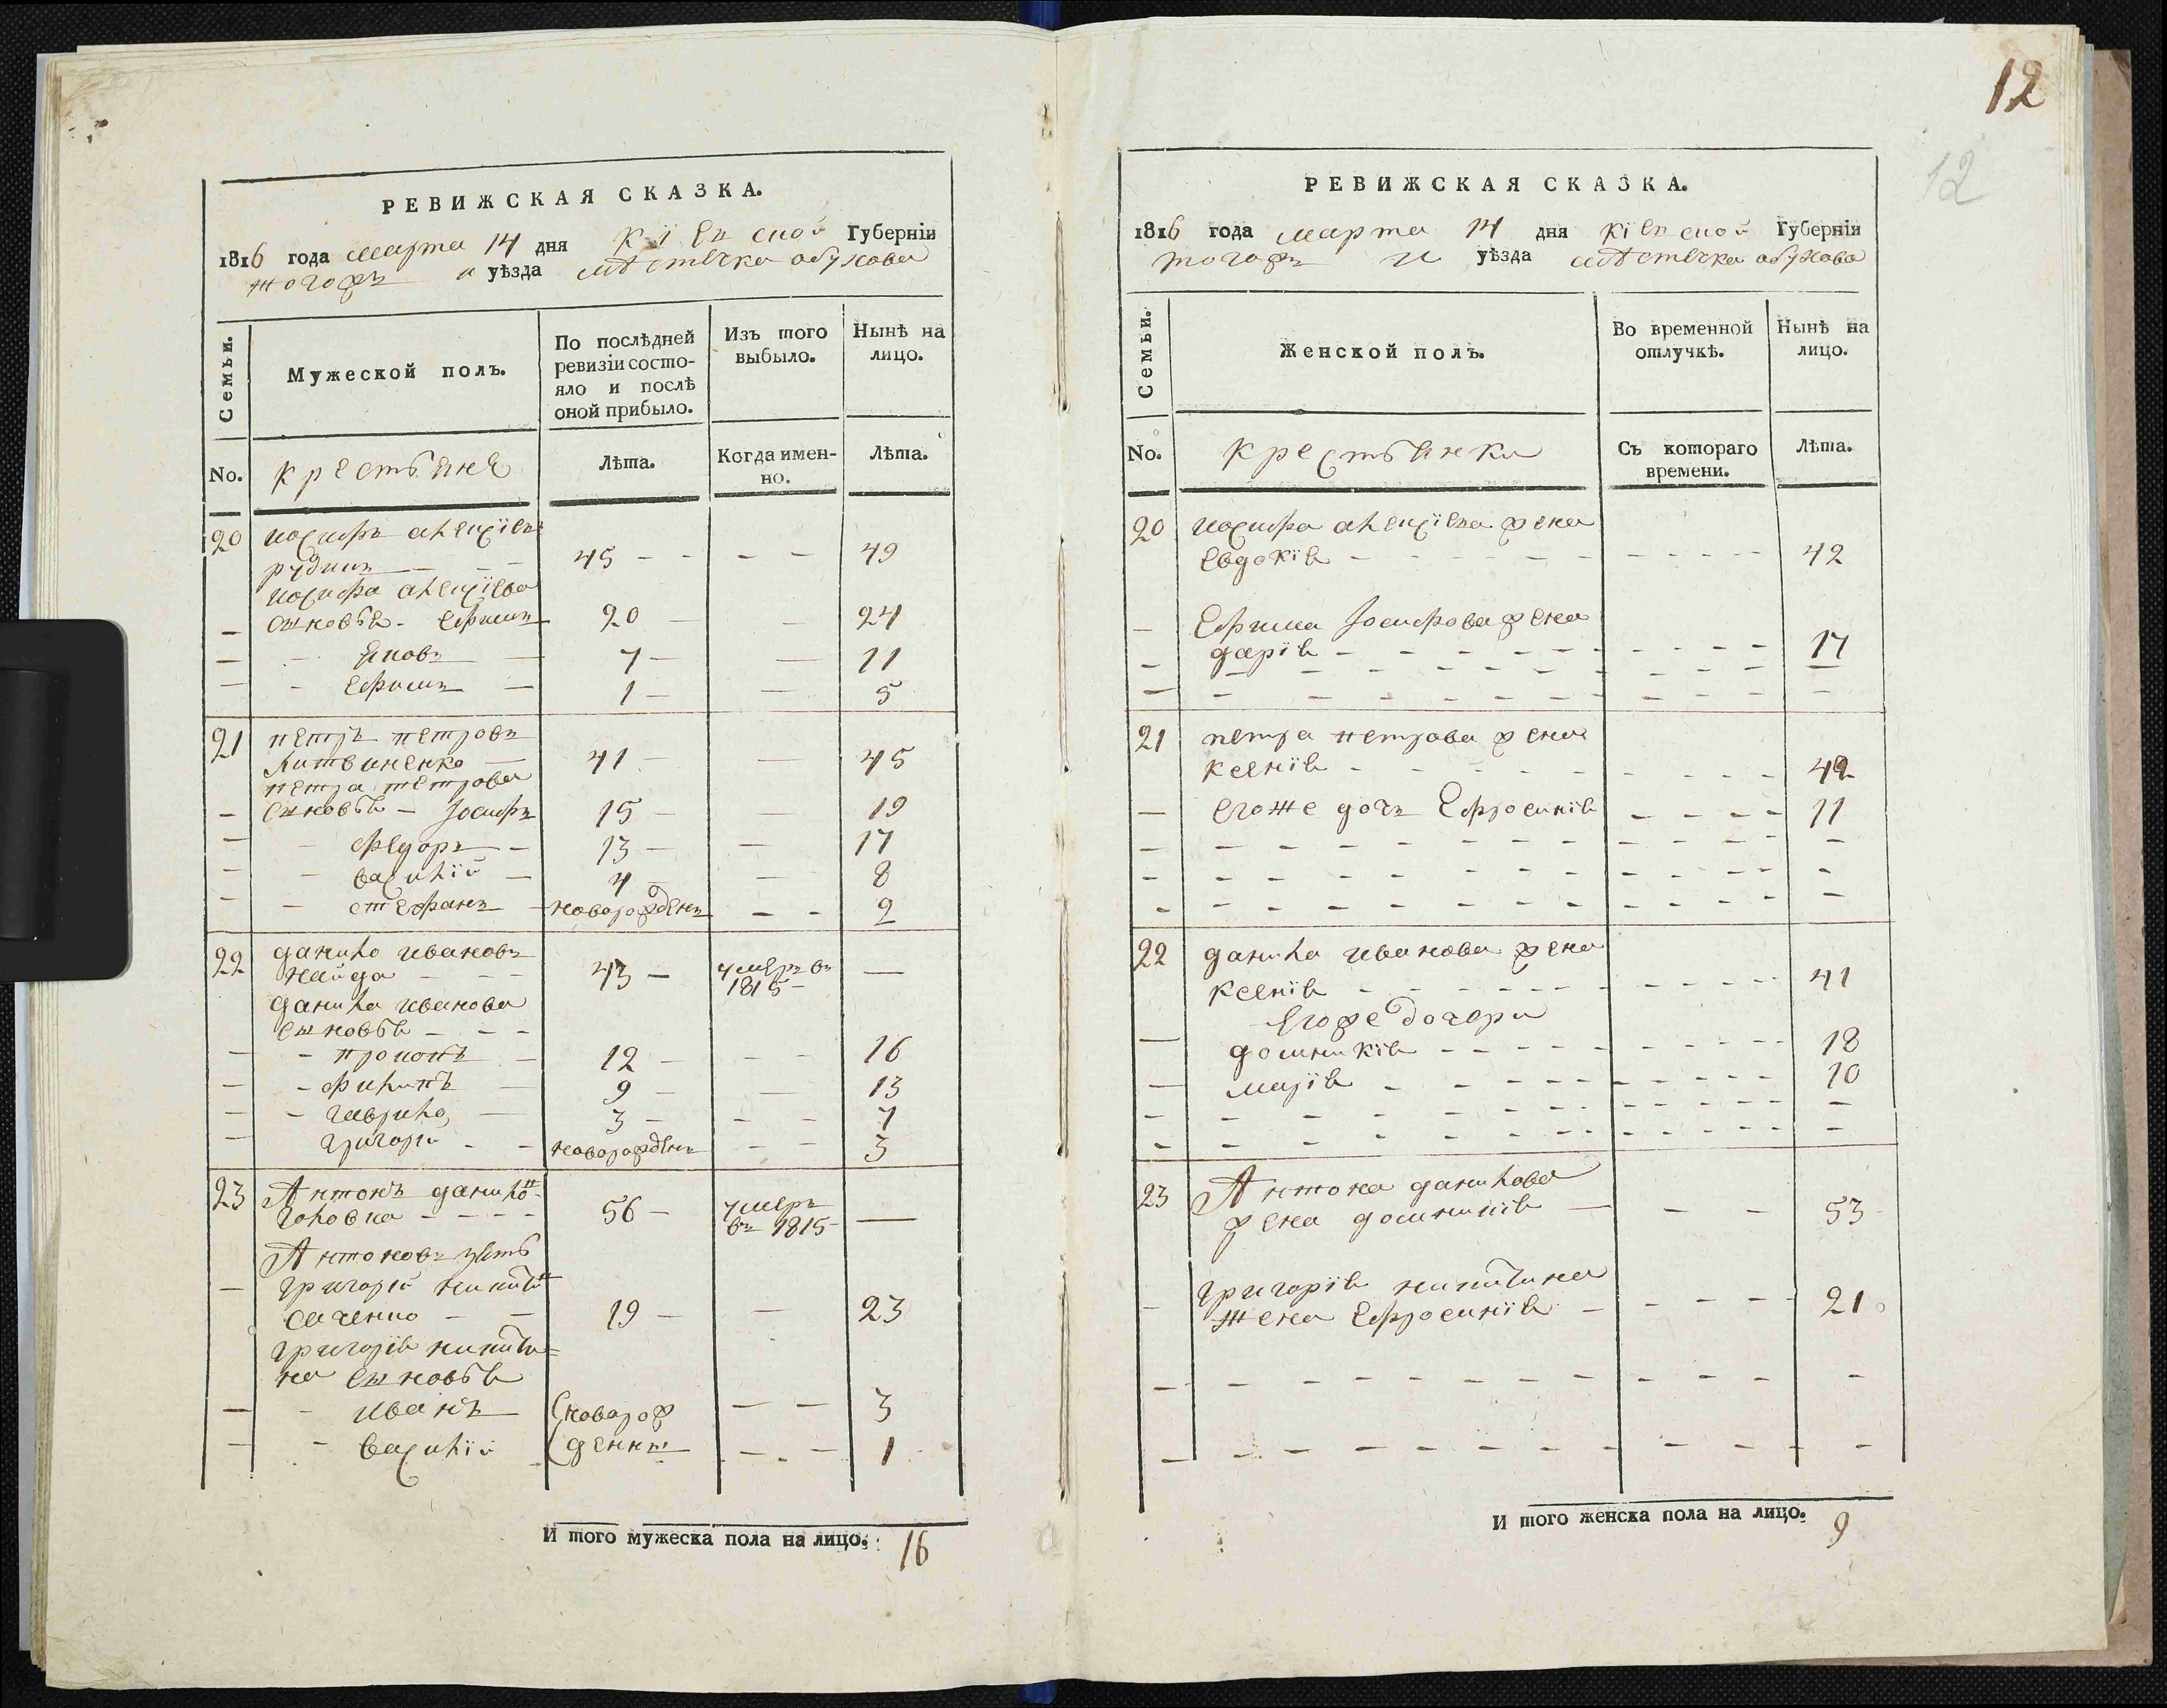 12
12
РЕВИЖСКАЯ СКАЗКА.
1816 года марта 14 дня Кіевской Губерніи
тогожъ и уѣзда мѣстечка обухова
Семьи.
Мужеской полъ.
По послѣдней ревизіи состо-
яло и послѣ
оной прибыло.
Изъ того
выбыло.
Нынѣ на
лицо.
No.
крестьяне
Лѣта.
Когда имен-
но.
Лѣта.
20 иосифъ алексіевъ
рудникъ — — — 45 — — — — 49
иосифа алексіева
— сыновья - Ефимъ 20 — — 24
— — Яковъ — 7 — — 11
— - Ефимъ — 1 — — 5
21 петръ петровъ
литвиненко — 41 — — 45
петра петрова
— сыновья — Іосифъ 15 — — 19
— — федоръ — 13 — — 17
- — василій — 4 — — 8
- — стефанъ — новорожденъ - - 2
22 данило ивановъ
найда — — — 43 — умеръ въ —
1815 —
данила иванова
сыновья — — —
— - прокопъ — 12 — — — 16
— - филипъ — 9 — — 13
— - гаврило — 3 — - — 7
— григорій - — новорожденъ — — 3
23 Антонъ данило-
головка — — — — 56 — умеръ —
въ 1815 —
Антоновъ зять
— григорій никити
саченко — — 19 — — 23
григорія никити=
на сыновья
— - иванъ новорож — — 3
— - василій денны — . — 1
И того мужеска пола на лицо: 16
РЕВИЖСКАЯ СКАЗКА.
1816 года марта 14 дня Кіевской Губерніи
тогожъ и уѣзда мѣстечка обухова
Семьи.
Женской полъ.
Во временной
отлучкѣ.
Нынѣ на
лицо.
No.
крестьянки
Съ котораго
времени.
Лѣта.
20 иосифа алексіева жена
Евдокія — — — — — — — — — 42
— Ефима Іосифова жена
дарія — - - - - - - - - 17
21 петра петрова жена
ксенія - - - - - - - - - 42
— егоже дочь Ефросинія - - - - 11
22 данила иванова жена
ксенія - - - - - - - - - 41
Егоже дочери
— домникія - - - - - - - - - 18
— марія - - - - - - - - - 10
23 Антона данилова
жена домникія — — — 53
- григорія никитина
жена Ефросинія — - - - - 21
И того женска пола на лицо: 9